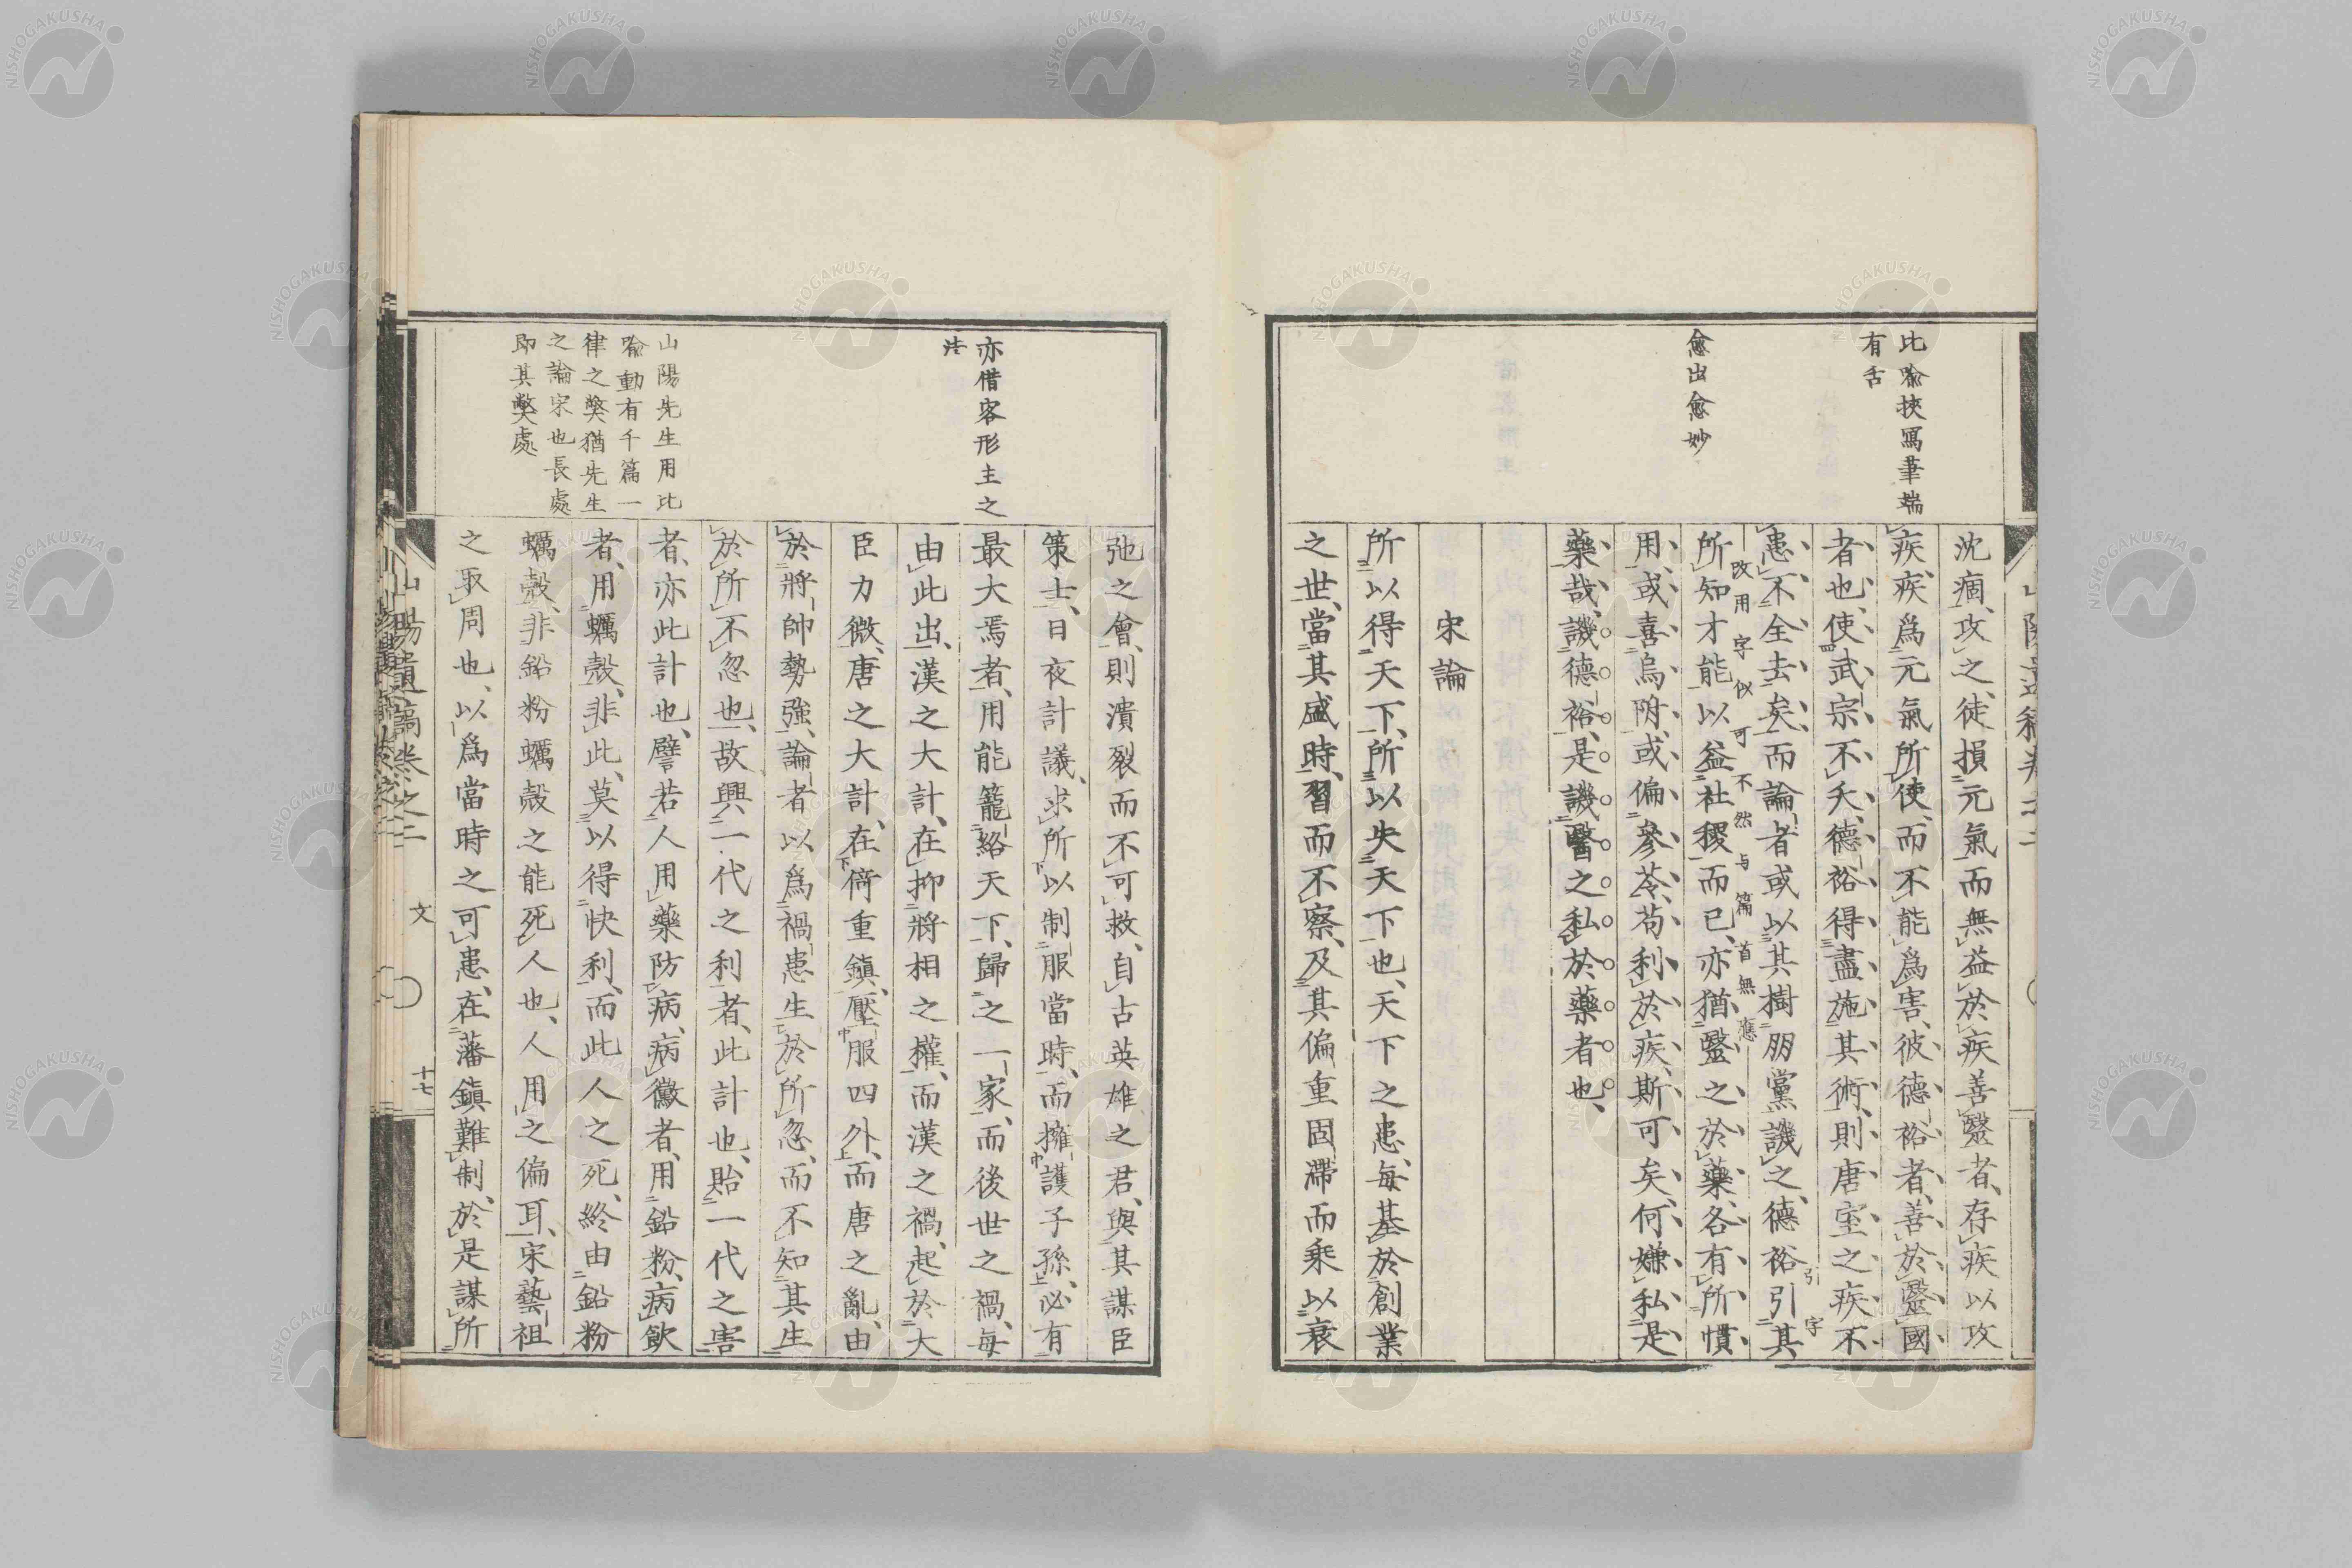 比喩挾寫筆端
有舌
愈出愈妙
沈痼、攻之、徒損元氣而無益於疾、善毉者、存疾以攻
疾、疾爲元氣所使、而不能爲害、彼德裕者、善於毉國
者也、使武宗不夭、德裕得盡施其術、則唐室之疾不
患不全去矣、而論者或以其樹朋黨譏之、德裕引其
引字
所知才能以益社稷而已、亦猶毉之於藥、各有所慣
改用字似可不然与篇首無應
用、或喜烏附、或偏參苓、苟利於疾、斯可矣、何嫌私是
藥哉、譏德裕、是譏醫之私於藥者也、
宋論
所以得天下、所以失天下也、天下之患、每基於創業
之世、當其盛時、習而不察、及其偏重固滯而乘以衰
亦借客形主之
法
山陽先生用比
喩動有千篇一
律之獘猶先生
之論宋也長處
即其獘處
弛之會、則潰裂而不可救、自古英雄之君、與其謀臣
策士、日夜計議、求所以制服當時、而擁護子孫、必有
最大焉者、用能籠絡天下、歸之一家、而後世之禍、每
由此出、漢之大計、在抑將相之權、而漢之禍、起於大
臣力微、唐之大計、在倚重鎭、壓服四外、而唐之亂、由
於將帥勢強、論者以爲禍患生於所忽、而不知其生
於所不忽也、故興一代之利者、此計也、貽一代之害
者、亦此計也、譬若人用藥防病、病黴者、用鉛粉、病飮
者、用蠣殼、非此、莫以得快利、而此人之死、終由鉛粉
蠣殼、非鉛粉蠣殼之能死人也、人用之偏耳、宋藝祖
之取周也、以爲當時之可患、在藩鎭難制、於是謀所
山陽遺稿卷之二
文
十七